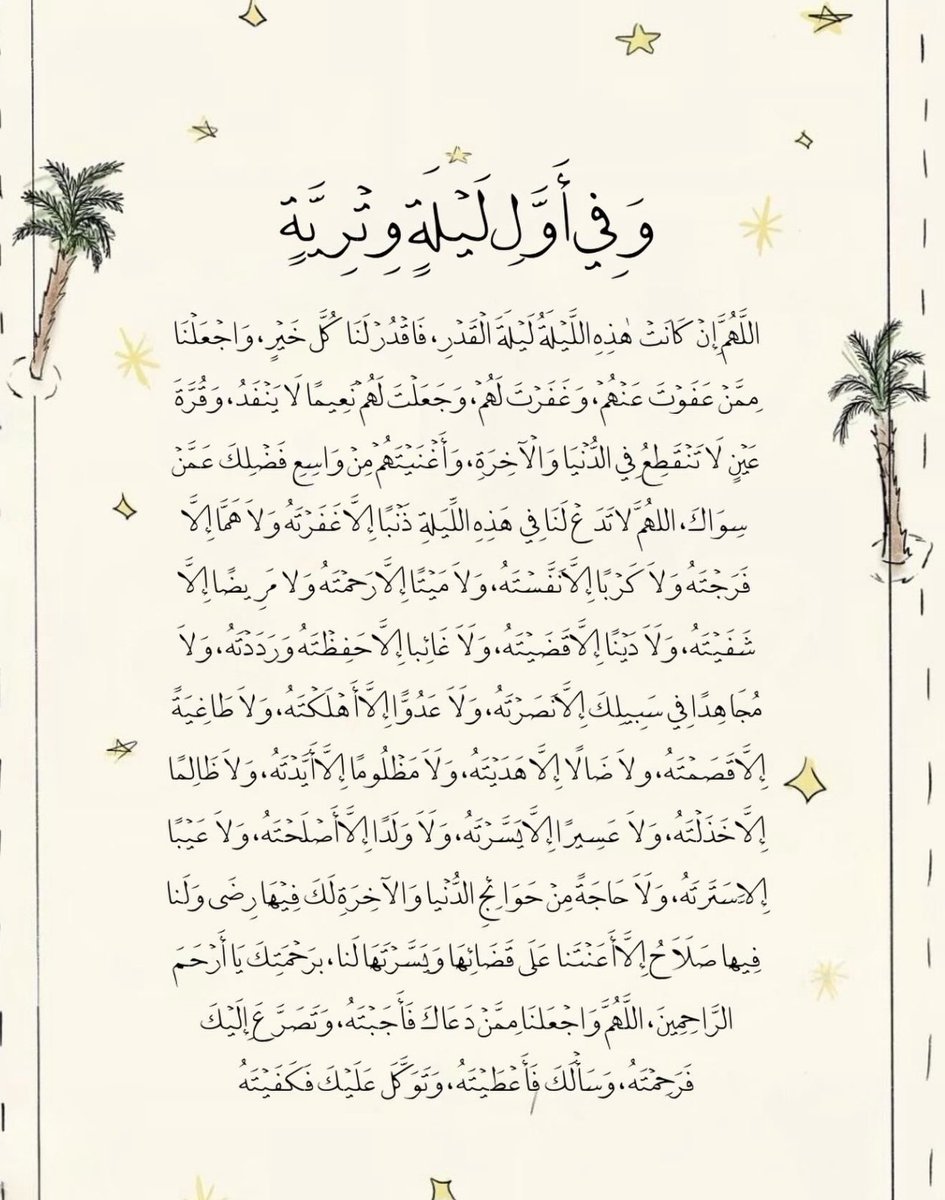 وَفِي أَوَّلِ لَيْلَةٍ وِتْرِيَّةٍ
اللَّهُمَّ إِنْ كَانَتْ هٰذِهِ اللَّيْلَةُ لَيْلَةَ الْقَدْرِ، فَاقْدُرْ لَنَا كُلَّ خَيْرٍ، وَاجْعَلْنَا
مِمَّنْ عَفَوْتَ عَنْهُمْ، وَغَفَرْتَ لَهُمْ، وَجَعَلْتَ لَهُمْ نَعِيمًا لَا يَنْفَدُ، وَقُرَّةَ
عَيْنٍ لَا تَنْقَطِعُ فِي الدُّنْيَا وَالْآخِرَةِ، وَأَغْنَيْتَهُمْ مِنْ وَاسِعِ فَضْلِكَ عَمَّنْ
سِوَاكَ، اللهُمَّ لَا تَدَعْ لَنَا فِي هَذِهِ اللَّيلَةِ ذَنْبًا إِلَّا غَفَرْتَهُ وَلَا هَمًّا إِلَّا
فَرَجْتَهُ وَلَا كَرْبًا إِلَّا نَفَّسْتَهُ، وَلَا مَيْتًا إِلَّا رَحْمْتَهُ وَلَا مَرِيضًا إِلَّا
شَفَيْتَهُ، وَلَا دَيْنًا إِلَّا قَضَيْتَهُ، وَلَا غَائِبا إِلَّا حَفِظْتَهُ وَرَدَدْتَهُ، وَلَا
مُجَاهِدًا فِي سَبِيلِكَ إِلَّا نَصَرْتَهُ، وَلَا عَدُوًّا إِلَّا أَهْلَكْتَهُ، وَلَا طَاغِيَةً
إِلَّا قَصَمْتَهُ، ولَا ضَالًا إِلَّا هَدَيْتَهُ، وَلَا مَظْلُومًا إِلَّا أَيَّدْتَهُ، وَلَا ظَالِمًا
إِلَّا خَذَلْتَهُ، وَلَا عَسِيرًا إِلَّا يَسَّرْتَهُ، وَلَا وَلَدًا إِلَّا أَصْلَحْتَهُ، وَلَا عَيْبًا
إِلا سَتَرَتَهُ، وَلَا حَاجَةً مِنْ حَوَائِجِ الدُّنْيا وَالآخِرَةِ لَكَ فِيْهَا رِضَى وَلَنا
فِيها صَلَاحُ إِلَّا أَعَنْتَنا عَلَى قَضَائِهَا وَيَسَّرْتَهَا لَنا، بِرَحْمَتِكَ يَا أَرْحَمَ
الرَّاحِمِينَ، اللَّهُمَّ وَاجْعَلنَا مِمَّنْ دَعَاكَ فَأَجَبْتَهُ، وَتَصَرَّعَ إِلَيْكَ
فَرَحِمْتَهُ، وَسَأَلَكَ فَأَعْطَيْتَهُ، وَتَوَكَّلَ عَلَيْكَ فَكَفَيْتَهُ